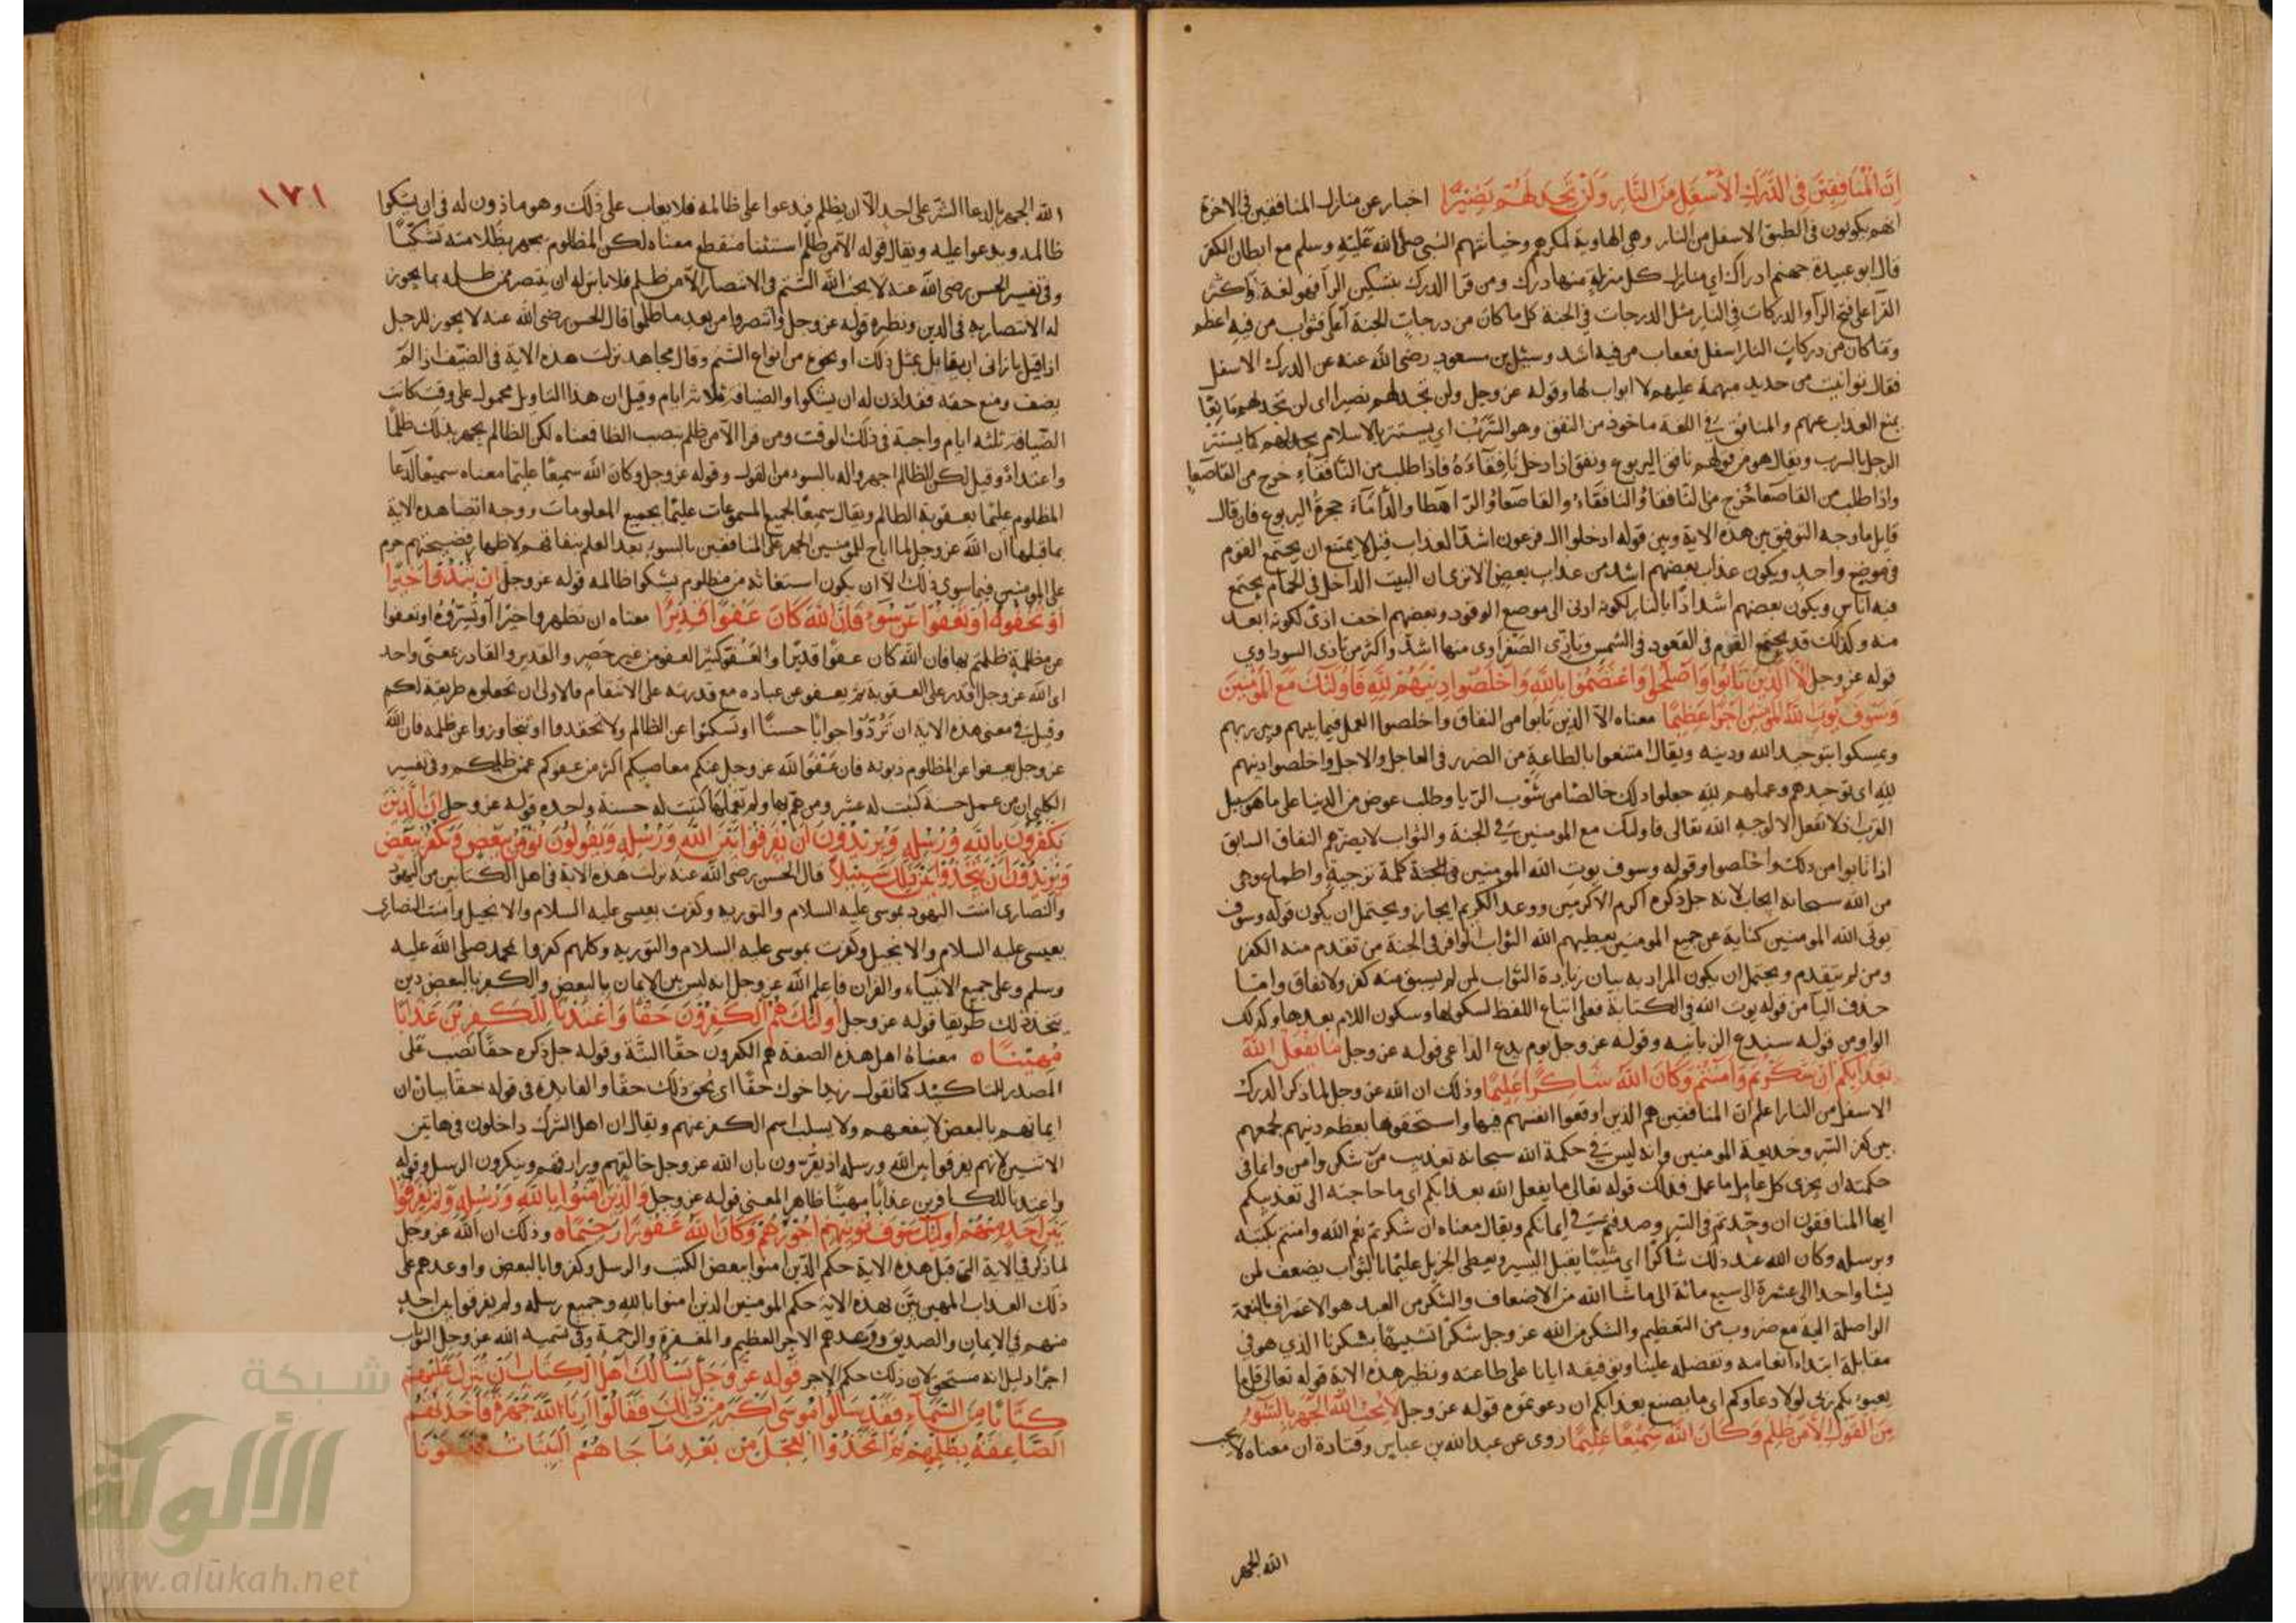 إن المنافقين في الدرك الأسفل من النار ولن تجد لهم نصيرا اخبار عن منازل المنافقين في الاخرة
انهم يكونون في الطبق الاسفل من النار وهي الهاوية لمكرهم وخيانتهم النبي صلى الله عليه وسلم مع ابطان الكفر
قال ابو عبيدة جهنم ادراك اي منازل كل منزلة منها درك ومن قرا الدرك بتسكين الرا فهو لغة واكثر
القرا على فتح الرا والدركات في النار مثل الدرجات في الجنة كل ما كان من درجات الجنة اعلى فثواب من فيه اعظم
وما كان من دركات النار اسفل فعقاب من فيه اشد وسئل بن مسعود رضى الله عنه عن الدرك الاسفل
فقال توابيت من حديد مبهمة عليهم لا ابواب لها وقوله عز وجل ولن تجد لهم نصيرا اى لن تجد لهم مانعا
يمنع العذاب عنهم والمنافق في اللغة ماخوذ من النفق وهو السرب اي يستتر بالاسلام كما يستتر
الرجل بالسرب ويقال هو من قولهم نافق اليربوع ونفق اذا دخل نافقاءه فاذا طلب من النافقاء خرج من القاصعا
واذا طلب من القاصعا خرج من النافقا والنافقاء والقاصعاء والراهطا والداماء جحرة اليربوع فان قال
قايل ما وجه التوفيق بين هذه الاية وبين قوله ادخلوا ال فرعون اشد العذاب قيل لا يمتنع ان يجتمع القوم
في موضع واحد ويكون عذاب بعضهم اشد من عذاب بعض الا ترى ان البيت الداخل في الحمام يجتمع
فيه اناس ويكون بعضهم اشد اذا بالنار لكونه ادنى الى موضع الوقود وبعضهم اخف اذى لكونه ابعد
منه وكذلك قد يجتمع القوم في القعود في الشمس وتاذى الصفراوى منها اشد واكثر من تاذى السوداوي
قوله عز وجل إلا الذين تابوا وأصلحوا واعتصموا بالله وأخلصوا دينهم لله فأولئك مع المؤمنين
وسوف يؤت الله المؤمنين أجرا عظيما معناه الا الذين تابوا من النفاق واخلصوا العمل فيما بينهم وبين ربهم
وتمسكوا بتوحيد الله ودينه ويقال امتنعوا بالطاعة من الضرر في العاجل والاجل واخلصوا دينهم
لله اى توحيدهم وعملهم لله جعلوا ذلك خالصا من شوب الريا وطلب عوض من الدنيا على ما هو سبيل
القرب فلا تفعل الا لوجه الله تعالى فاوليك مع المومنين في الجنة والثواب لا يضرهم النفاق السابق
اذا تابوا من ذلك واخلصوا وقوله وسوف يوت الله المومنين في الجنة كلمة ترجية واطماع وهي
من الله سبحانه ايجاب لانه جل ذكره اكرم الاكرمين ووعد الكريم ايجاز ويحتمل ان يكون قوله وسوف
يوتى الله المومنين كناية عن جميع المومنين يعطيهم الله الثواب الوافر في الجنة من تقدم منه الكفر
ومن لم يتقدم ويحتمل ان يكون المراد به بيان زيادة الثواب لمن لم يسبق منه كفر ولا نفاق وامتا
حذف اليا من قوله يوت الله في الكتابة فعلى اتباع اللفظ لسكونها وسكون اللام بعدها وكذلك
الواو من قوله سندع الزبانيه وقوله عز وجل يوم يدع الداعى قوله عز وجل ما يفعل الله
بعذابكم إن شكرتم وآمنتم وكان الله شاكرا عليما وذلك ان الله عز وجل لما ذكر الدرك
الاسفل من النار اعلم ان المنافقين هم الذين اوقعوا انفسهم فيها واستحقوها بعظم دينهم لجمعهم
بين كفر السر وخديعة المومنين وانه ليس في حكمة الله سبحانه تعذيب من شكر وامن وانما في
حكمته ان يجزى كل عامل ما عمل فذلك قوله تعالى ما يفعل الله بعذابكم اى ما حاجته الى تعذيبكم
ايها المنافقون ان وحدتم في السر وصدقتم في ايمانكم ويقال معناه ان شكرتم نعم الله وامنتم بكتبه
وبرسله وكان الله عند ذلك شاكرا اي مثيبا يقبل اليسير ويعطى الجزيل عليما بالثواب يضعف لمن
يشا واحدا الى عشرة الى سبع مائة الى ما شا الله من الاضعاف والشكر من العبد هو الاعتراف بالنعمة
الواصلة اليه مع ضروب من التعظيم والشكر من الله عز وجل شكرا تشبيها بشكرنا الذي هو في
مقابلة ابتداء انعامه وتفضله علينا وتوفيقه ايانا على طاعته ونظير هذه الاية قوله تعالى قل ما
يعبوء بكم ربى لولا دعاوكم اى ما يصنع بعذابكم ان دعوتموه قوله عز وجل لا يحب الله الجهر بالسوء
من القول إلا من ظلم وكان الله سميعا عليما روى عن عبد الله بن عباس وقتادة ان معناه لا يحب
الله الجهر
١٧١
الله الجهر بالدعا الشر على احد الا ان يظلم فيدعوا على ظالمه فلا يعاب على ذلك وهو ماذون له في ان يشكوا
ظالمه ويدعوا عليه ويقال قوله الا من ظلم استثنا منقطع معناه لكن المظلوم يجهر بظلامته تشكيا
وفي تفسير الحسن رضى الله عنه لا يحب الله الشتم في الانتصار الا من ظلم فلا باس له ان ينتصر ممن ظلمه بما يجوز
له الانتصار به في الدين ونظيره قوله عز وجل وانتصروا من بعد ما ظلموا قال الحسن رضى الله عنه لا يجوز للرجل
اذا قيل يا زانى ان يقابل بمثل ذلك او نحوه من انواع الشتم وقال مجاهد نزلت هذه الاية في الضيف اذا لم
يضف ومنع حقه فقد اذن له ان يشكوا والضيافة ثلاثة ايام وقيل ان هذا التاويل محمول على وقت كانت
الضيافة ثلثه ايام واجبة في ذلك الوقت ومن قرا الا من ظلم بنصب الظا فمعناه لكن الظالم يجهر بذلك ظلما
واعتداء وقيل لكن الظالم اجهروا له بالسوء من القول وقوله عز وجل وكان الله سميعا عليما معناه سميعا لدعا
المظلوم عليما بعقوبة الظالم ويقال سميعا لجميع المسموعات عليما بجميع المعلومات ووجه اتصال هذه الاية
بما قبلها ان الله عز وجل لما اباح للمومنين الجهر على المنافقين بالسوء بعد العلم بنفاقهم لاظهار فضيحتهم حرم
على المومنين فيما سوى ذلك الا ان يكون استغاثه من مظلوم يشكوا ظالمه قوله عز وجل إن تبدوا خيرا
أو تخفوه أو تعفوا عن سوء فإن الله كان عفوا قديرا معناه ان تظهروا خيرا او تسروه او تعفوا
عن مظلمة ظلمتم بها فان الله كان عفوا قديرا والعفو كبير العفو من غير حصر والقدير والقادر بمعنى واحد
اى الله عز وجل اقدر على العقوبة ثم يعفو عن عباده مع قدرته على الانتقام فالاولى ان تجعلوه طريقه لكم
وقيل في معنى هذه الاية ان تردوا جوابا حسنا او تسكتوا عن الظالم ولا تحقدوا او تتجاوزوا عن ظلمه فان الله
عز وجل يعفوا عن المظلوم ذنوبه فان عفو الله عز وجل عنكم معاصيكم اكثر من عفوكم عمن ظلمكم وفي تفسير
الكلبى ان من عمل حسنة كتبت له عشر ومن هم بها ولم يعملها كتبت له حسنة واحده قوله عز وجل إن الذين
يكفرون بالله ورسله ويريدون أن يفرقوا بين الله ورسله ويقولون نؤمن ببعض ونكفر ببعض
ويريدون أن يتخذوا بين ذلك سبيلا قال الحسن رضى الله عنه نزلت هذه الاية في اهل الكتابين من اليهود
والنصارى امنت اليهود بموسى عليه السلام والتوريه وكفرت بعيسى عليه السلام والانجيل وامنت النصارى
بعيسى عليه السلام والانجيل وكفرت بموسى عليه السلام والتوريه وكلهم كفروا بمحمد صلى الله عليه
وسلم وعلى جميع الانبياء والقران فاعلم الله عز وجل انه ليس بين الايمان بالبعض والكفر بالبعض دين
يتخذ ذلك طريقا قوله عز وجل أولئك هم الكفرون حقا وأعتدنا للكفرين عذابا
مهينا معناه اهل هذه الصفة هم الكفرون حقا البتة وقوله جل ذكره حقا نصب على
المصدر للتاكيد كما تقول زيد اخوك حقا اى يحق ذلك حقا والفايدة في قوله حقا بيان ان
ايمانهم بالبعض لا ينفعهم ولا يسلب اسم الكفر عنهم ويقال ان اهل الشرك داخلون في هاتين
الايتين لانهم يفرقوا بين الله ورسله اذ يقرون بان الله عز وجل خالقهم ورازقهم وينكرون الرسل وقوله
واعتدنا للكافرين عذابا مهينا ظاهر المعنى قوله عز وجل والذين آمنوا بالله ورسله ولم يفرقوا
بين أحد منهم أولئك سوف نؤتيهم أجورهم وكان الله غفورا رحيما وذلك ان الله عز وجل
لما ذكر في الاية التى قبل هذه الاية حكم الذين امنوا ببعض الكتب والرسل وكفروا بالبعض واوعدهم على
ذلك العذاب المهين بين بهذه الاية حكم المومنين الذين امنوا بالله وجميع رسله ولم يفرقوا بين احد
منهم في الايمان والصديق ووعدهم الاجر العظيم والمغفرة والرحمة وفي تسميه الله عز وجل الثواب
اجرا دليل انه مستحق لان ذلك حكم الاجر قوله عز وجل يسألك أهل الكتاب أن تنزل عليهم
كتابا من السماء فقد سألوا موسى أكبر من ذلك فقالوا أرنا الله جهرة فأخذتهم
الصاعقة بظلمهم ثم اتخذوا العجل من بعد ما جاءتهم البينات فعفونا
شبكة
الألوكة
www.alukah.net